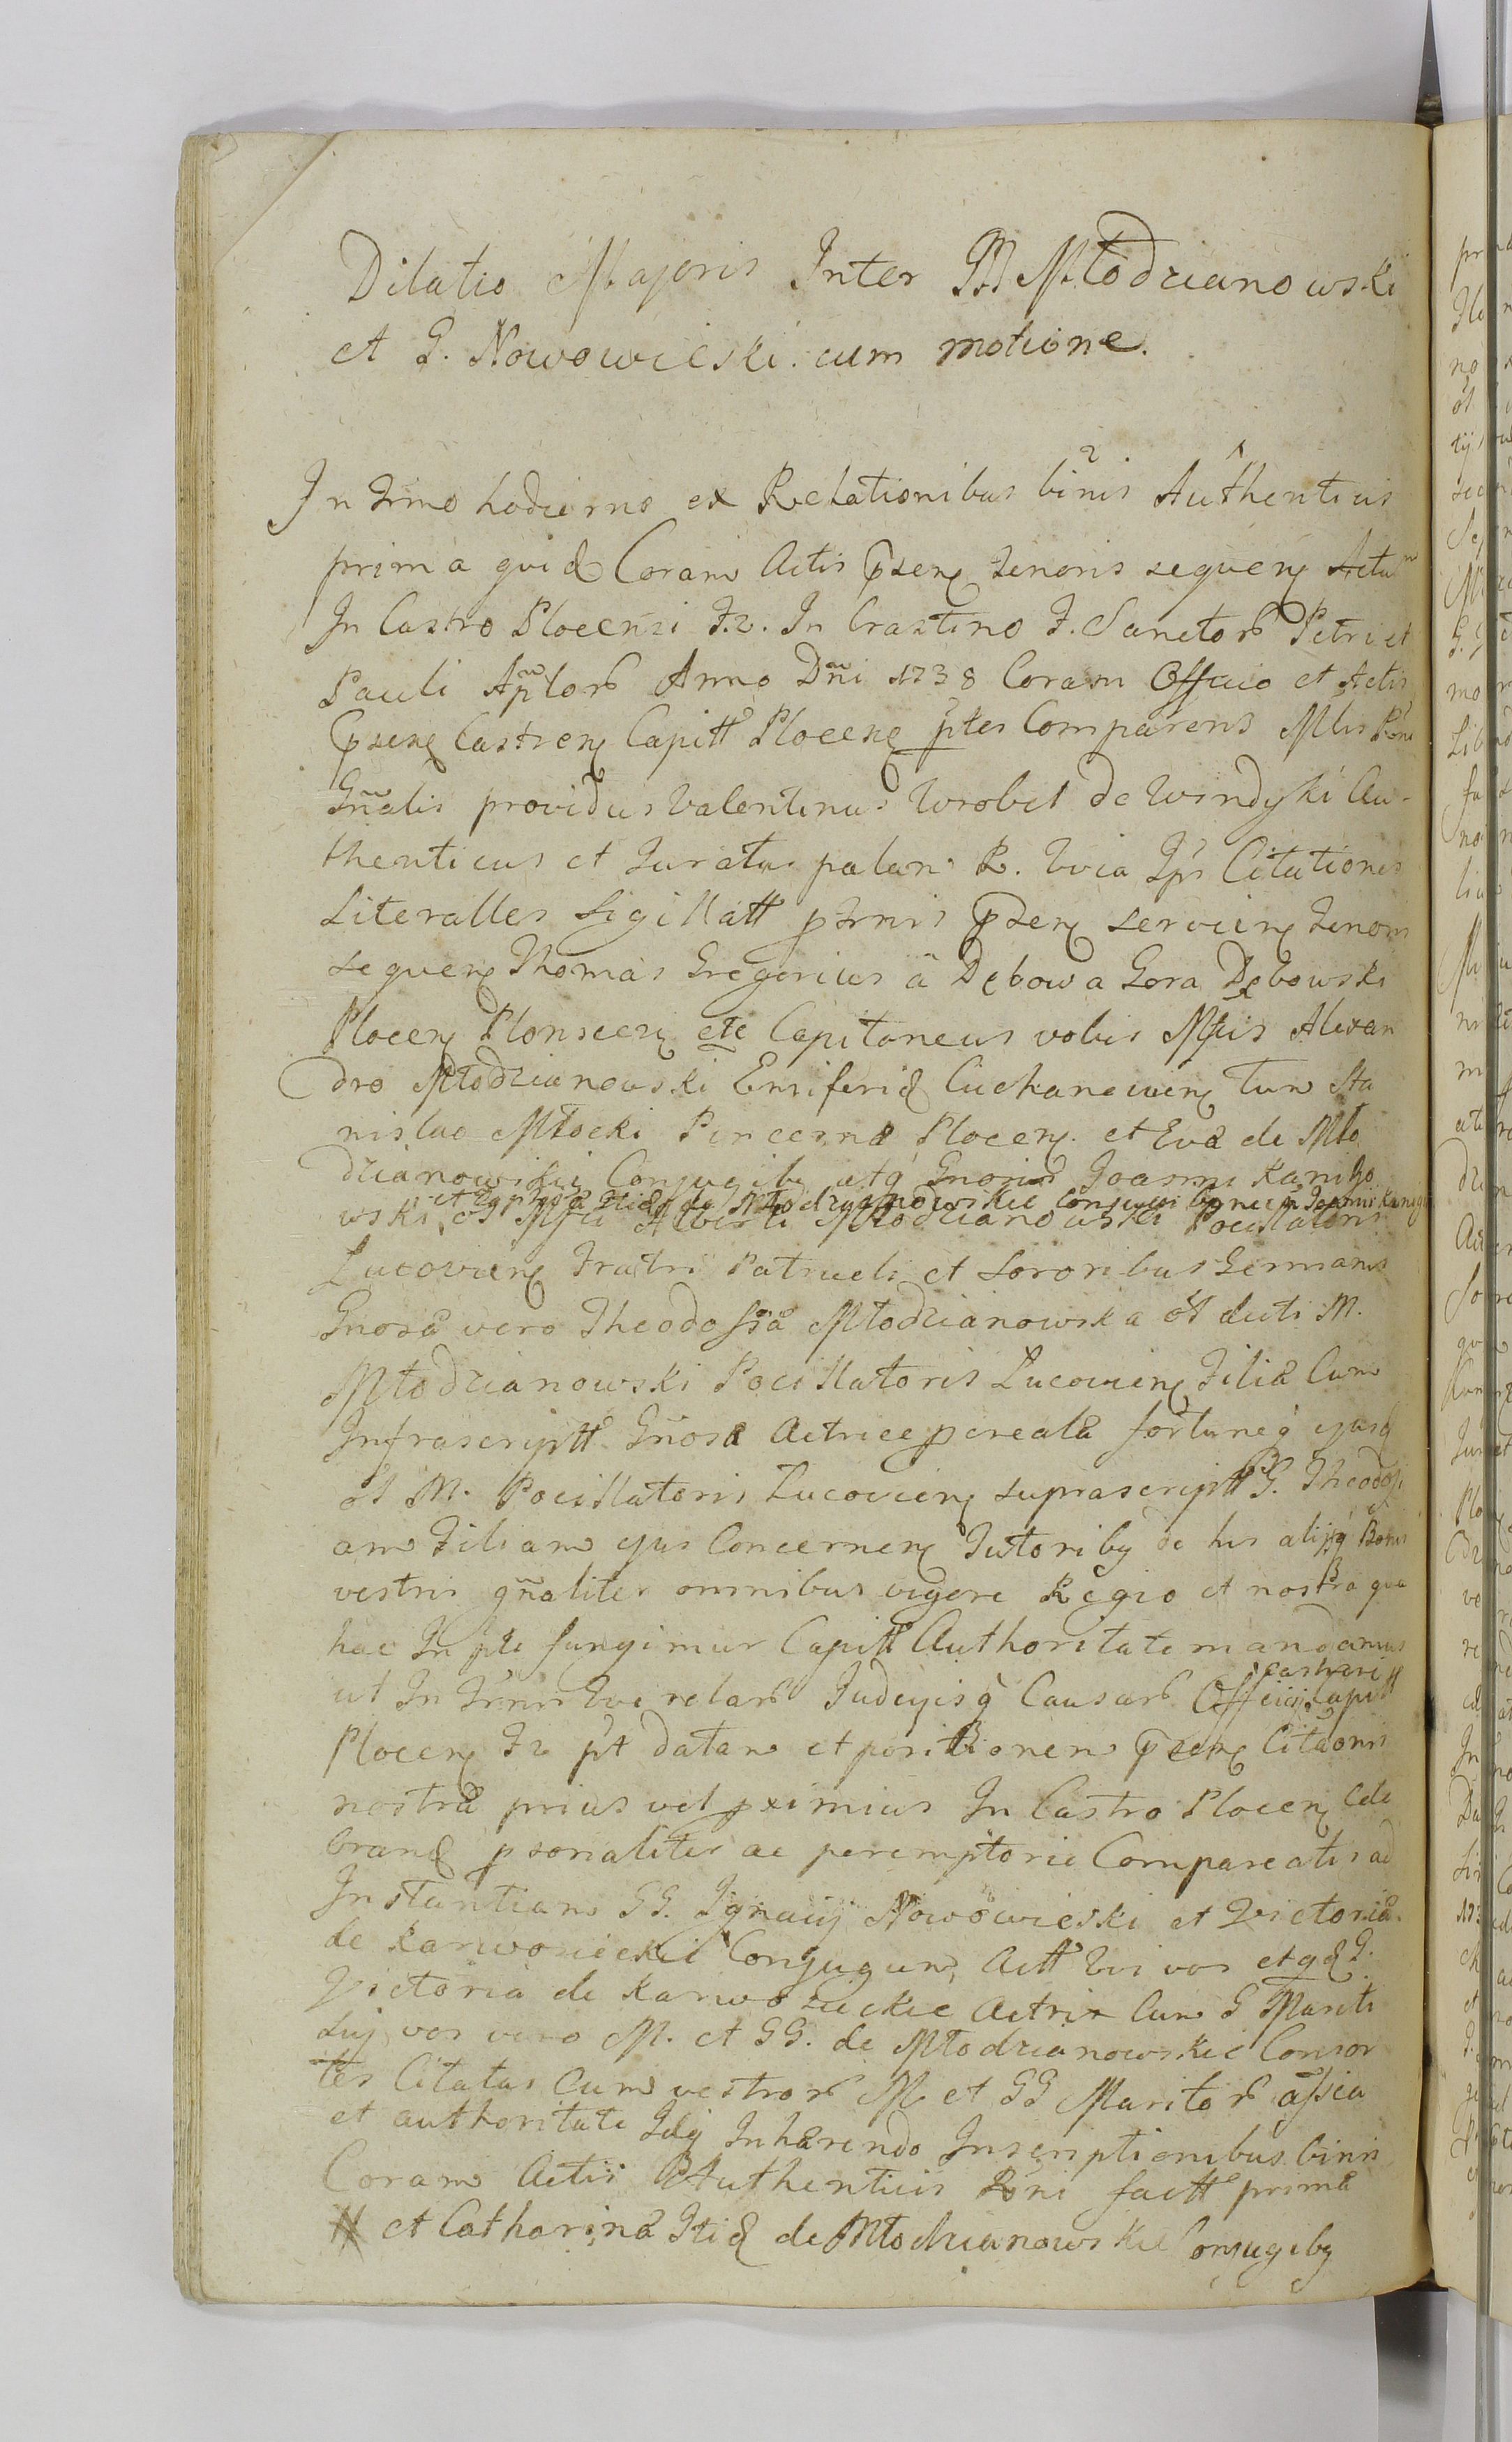 Dilatio Majoris Inter M Młodzianowski
et G. Nowowieski cum motione.
In Trmo hodierno ex Relationibus binis Authenticis
prima quid Coram Actis psen tenoris sequen Actum
In Castro Plocensi F. 2. In Crastino F. Sanctor Petri et
Pauli Aplor Anno Dni 1738 Coram Officio et Actis
psen Castren Capitt Plocen pter Comparens Mlis
Gnalis providus Valentinus Wrobel de Windyki Au-
thenticus et Juratus palam R. Citationes
Literalles Sigillatt trnis psen servien tenoris
sequen Thomas Gregorius a Dębowa Gora Dębowski
Plocen Plonscen etc Capitaneus vobis Mfcis Alexan
dro Młodzianowski Ensiferid Ciechanovien tum Sta
nislao Młocki Pincerna Plocen et Eva de Mło
dzianowskie Conjugiby atq Gnoris Joanni Kanigo
et Sophia Itid de Młodzianowskie Conjugiby
wski, ol Mfci Alberti Młodzianowski Pocillatoris
Lucovien Fratri Patrueli et Sororibus Germanis
Gnosa vero Theodossia Młodzianowska ol dicti M.
Młodzianowski Pocillatoris Lucovien Filia Cum
Infrascriptt Gnosa Actrice pcreata fortuneq ejusd
ol M. Pocillatoris Lucovien suprascriptt G. Theodossi
am Filiam ejus Concernen Tutoriby de his alijsq Bonis
vestris gnaliter omnibus vigore Regio et nostra qua
hac In pte fungimur Capitt Authoritate mandamus
castren
ut In Trmis Querelar Judicijsq Causar Officij Capitt
Plocen F. 2 pt datam et positionem psen Citaonis
nostra prius vel pximius In Castro Plocen Cele
brand psonaliter ac peremptorie Compareatis ad
Instantiam GG. Ignacij Nowowieski et Victoria
de Karwosieckie Conjugum, Actt vos etqd G.
Victoria de Karwosieckie Actrix Cum G Mariti
sui vos vero M. et GG. de Młodzianowskie Consor
tes Citatas Cum vestror M et GG Maritor assia
et authoritate Idq Inhærendo Inscriptionibus binis
Coram Actis Authenticis Rni factt prima
# et Catharina Itid de Młodzianowskie Conjugiby